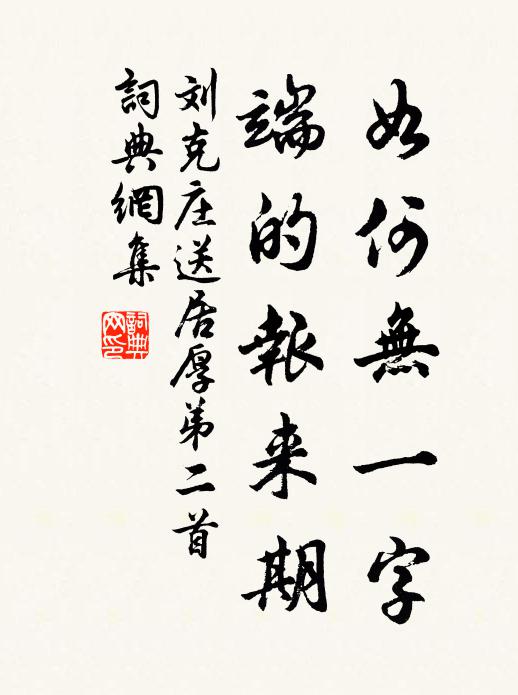 如何無一字
端的報来期
刘克庄送居厚弟二首
詞典網集
詞典网印